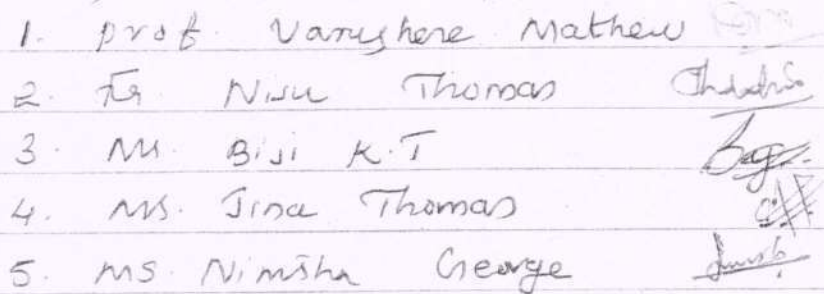 1. Prof. Varughese Mathew
2. Fr Niju Thomas
3. Ms. Biji K.T
4. Ms. Jina Thomas
5. Ms. Nimisha George